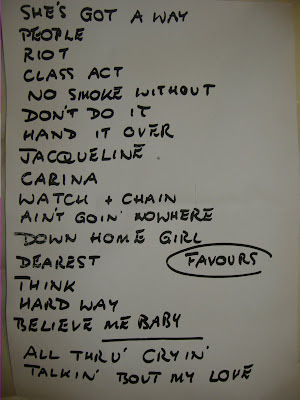 SHE'S GOT A WAY
PEOPLE
RIOT
CLASS ACT
NO SMOKE WITHOUT
DON'T DO IT
HAND IT OVER
JACQUELINE
CARINA
WATCH + CHAIN
AIN'T GOIN' NOWHERE
DOWN HOME GIRL
DEAREST FAVOURS
THINK
HARD WAY
BELIEVE ME BABY
ALL THRU' CRYIN'
TALKIN' 'BOUT MY LOVE